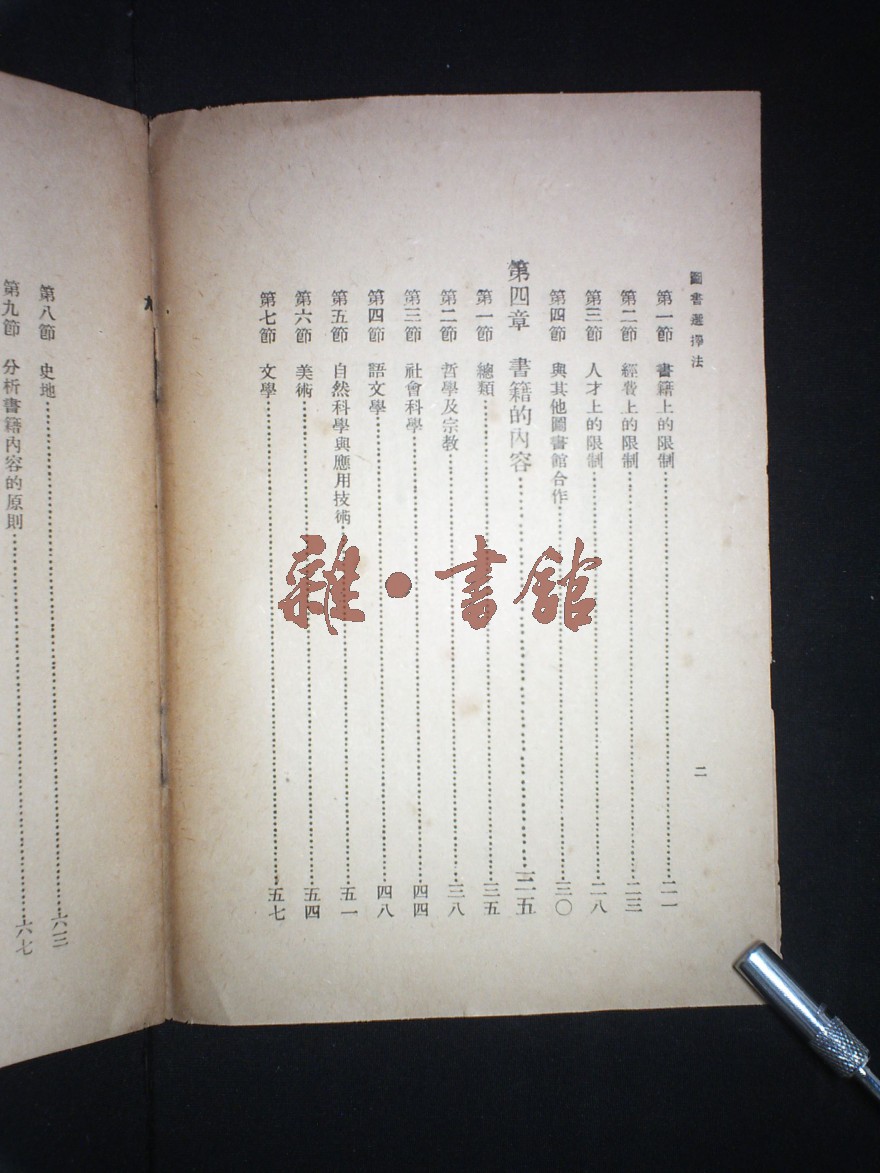 圖書選擇法
二
第一節 書籍上的限制……二一
第二節 經費上的限制……二三
第三節 人才上的限制……二八
第四節 與其他圖書館合作……三〇
第四章 書籍的內容……三五
第一節 總類……三五
第二節 哲學及宗教……三八
第三節 社會科學……四四
第四節 語文學……四八
第五節 自然科學與應用技術……五一
第六節 美術……五四
第七節 文學……五七
第八節 史地……六三
第九節 分析書籍內容的原則……六七
雜·書館